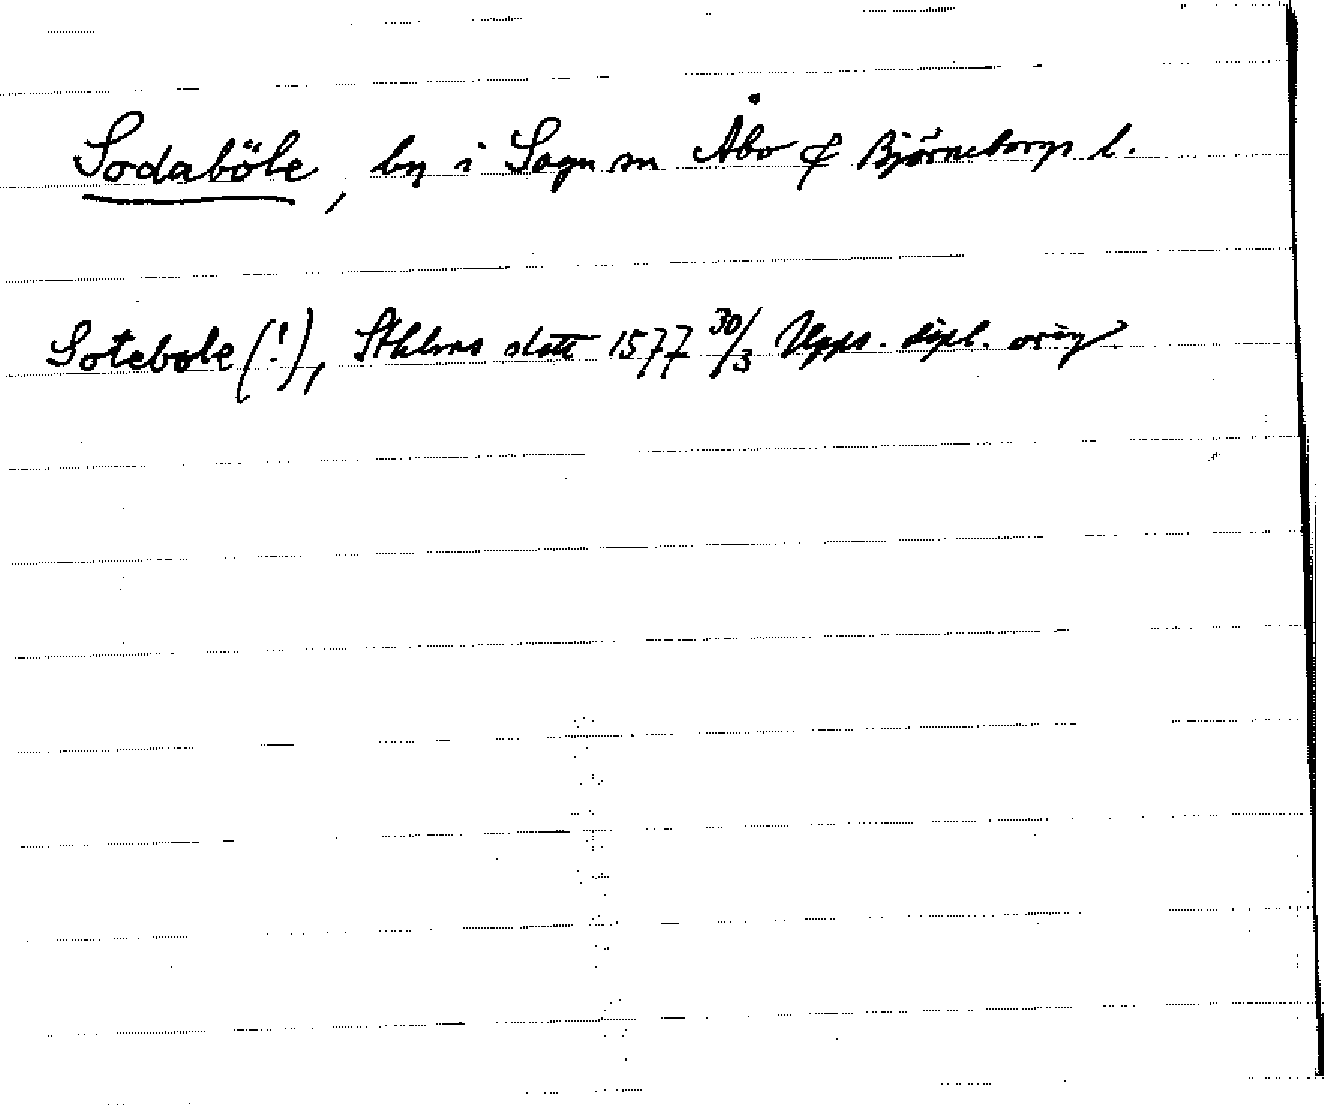 Sodaböle, by i Sagu sn Åbo & Björneborgs l.
Sotebole (!), Sthlms slott 1577 30/3 Upps. dipl. orig